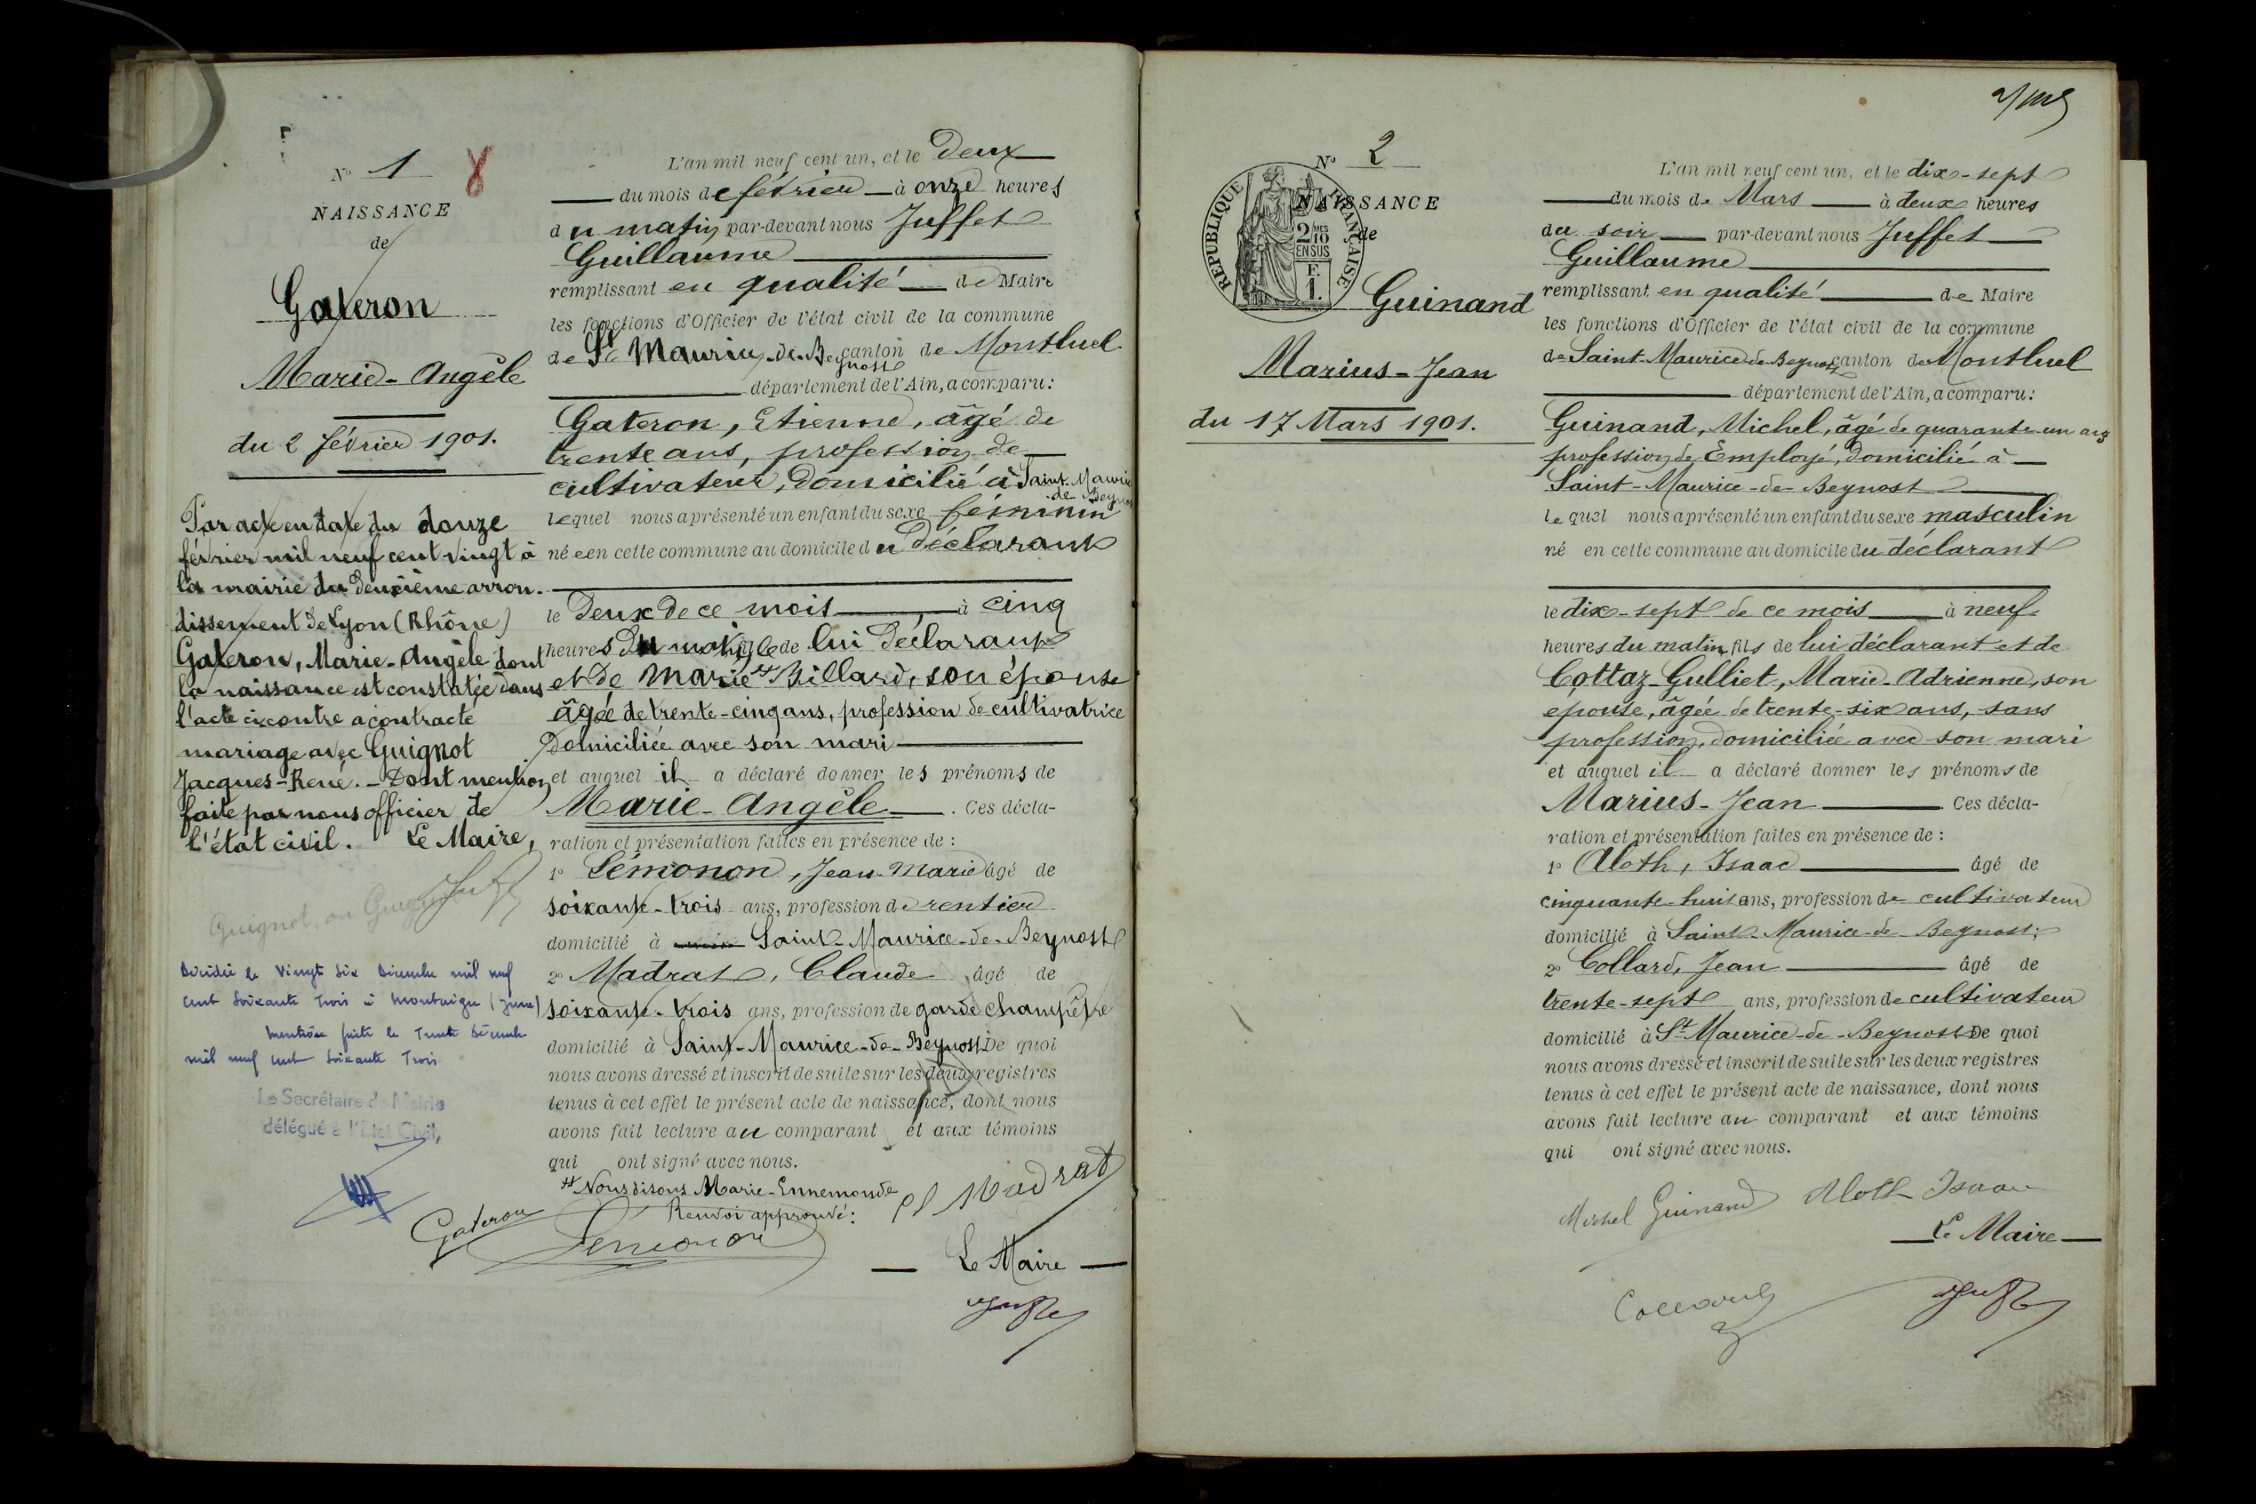 N° 1
NAISSANCE
de
Gateron
Marie-Angèle
du 2 février 1901.
Par acte en date du douze
février mil neuf cent vingt à
la mairie du deuxième arron-
dissement de Lyon (Rhône)
Gateron, Marie-Angèle dont
la naissance est constatée dans
l'acte ci-contre a contracté
mariage avec Guignot
Jacques-René. - Dont mention
faite par nous officier de
l'état civil. Le Maire,
Guignot, ou
Décédée le vingt six Décembre mil neuf
cent soixante trois à Montaigu (Jura)
Mention faite le Trente Décembre
mil neuf cent soixante trois
Le Secrétaire de Mairie
délégué à l'Etat Civil,
L'an mil neuf cent un, et le Deux
du mois de février à onze heures
du matin par-devant nous Juffet
Guillaume
remplissant en qualité de Maire
les fonctions d'Officier de l'état civil de la commune
de St Maurice-de-Beynost canton de Montluel
département de l'Ain, a comparu:
Gateron, Etienne, âgé de
trente ans, profession de
cultivateur, domicilié à Saint-Maurice
de-Beynost
lequel nous a présenté un enfant du sexe féminin
née en cette commune au domicile du déclarant
le Deux de ce mois à cinq
heures du matin fille de lui Déclarant
et de Marie Billard, son épouse
âgée de trente-cinq ans, profession de cultivatrice
Domiciliée avec son mari
et auquel il a déclaré donner les prénoms de
Marie-Angèle. Ces décla-
ration et présentation faites en présence de :
1° Lémonon, Jean-Marie âgé de
soixante-trois ans, profession de rentier
domicilié à Saint-Maurice-de-Beynost
2° Madrat, Claude âgé de
soixante-trois ans, profession de garde champêtre
domicilié à Saint-Maurice-de-Beynost. De quoi
nous avons dressé et inscrit de suite sur les deux registres
tenus à cet effet le présent acte de naissance, dont nous
avons fait lecture au comparant et aux témoins
qui ont signé avec nous.
Nous disons Marie-Ennemonde
Renvoi approuvé:
Gateron
Lemonon
Cl Madrat
Le Maire
Juffet
N° 2
RÉPUBLIQUE FRANÇAISE
2/10 MES
EN SUS
F.
1.
NAISSANCE
de
Guinand
Marius-Jean
du 17 Mars 1901.
L'an mil neuf cent un, et le dix-sept
du mois de Mars à deux heures
du soir par-devant nous Juffet
Guillaume
remplissant en qualité de Maire
les fonctions d'Officier de l'état civil de la commune
de Saint-Maurice-de-Beynost canton de Montluel
département de l'Ain, a comparu:
Guinand, Michel, âgé de quarante-un ans
profession de Employé, domicilié à
Saint-Maurice-de-Beynost
lequel nous a présenté un enfant du sexe masculin
né en cette commune au domicile du déclarant
le dix-sept de ce mois à neuf
heures du matin, fils de lui déclarant et de
Cottaz-Gulliet, Marie-Adrienne, son
epouse, âgée de trente-six ans, sans
profession, domiciliée avec son mari
et auquel il a déclaré donner les prénoms de
Marius-Jean Ces décla-
ration et présentation faites en présence de :
1° Aloth, Isaac âgé de
cinquante-huit ans, profession de cultivateur
domicilié à Saint-Maurice-de-Beynost;
2° Collard, Jean âgé de
trente-sept ans, profession de cultivateur
domicilié à St-Maurice-de-Beynost De quoi
nous avons dressé et inscrit de suite sur les deux registres
tenus à cet effet le présent acte de naissance, dont nous
avons fait lecture au comparant et aux témoins
qui ont signé avec nous.
Michel Guinand Aloth Isaac
Le Maire
Collard
Juffet